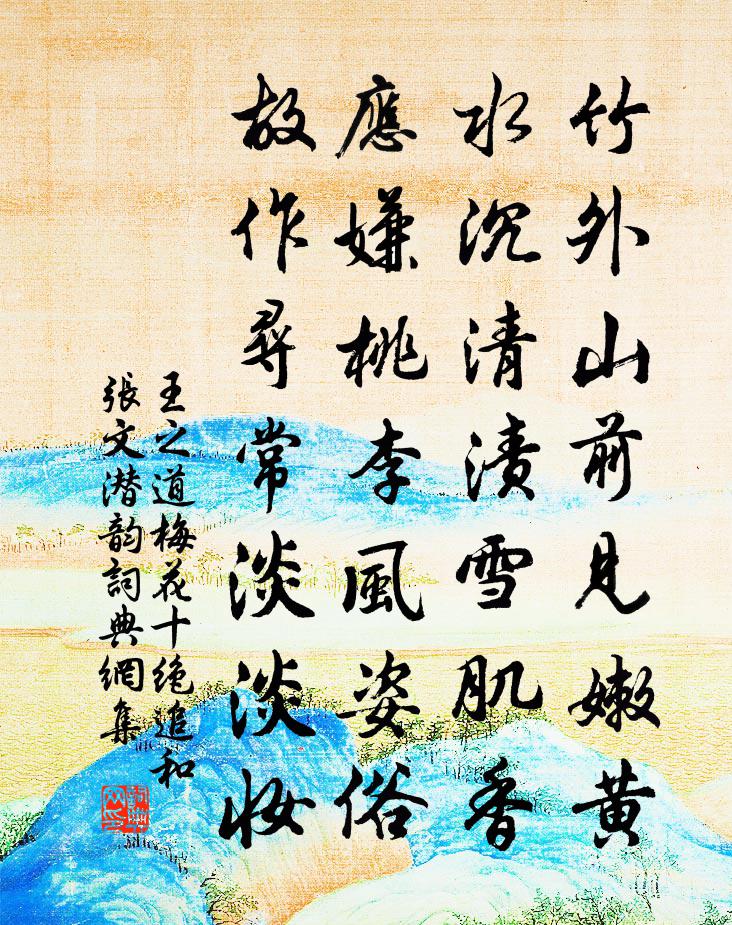 竹外山前見嫩黃
水沉清漬雪肌香
應嫌桃李風姿俗
故作尋常淡淡妝
王之道梅花十绝追和
張文潜韵詞典網集